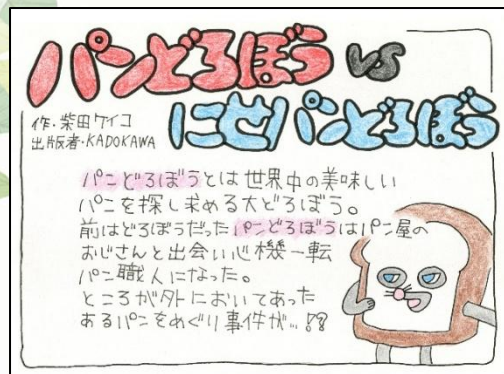 パンどろぼう vs
にせパンどろぼう
作・柴田ケイコ
出版者・KADOKAWA
パンどろぼうとは世界中の美味しい
パンを探し求める大どろぼう。
前はどろぼうだったパンどろぼうはパン屋の
おじさんと出会い心機一転
パン職人になった。
ところが外においてあった
あるパンをめぐり事件が…!?